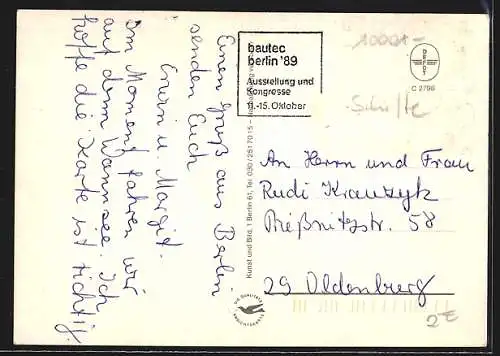 Einen Gruß aus Berlin
senden Euch
Erwin u. Margit.
Im Moment fahren wir
auf dem Wannsee. Ich
hoffe die Karte ist richtig.
bautec
berlin '89
Ausstellung und
Kongresse
11.-15. Oktober
10001-
Schiffe
C 2796
Kunst und Bild, 1 Berlin 61, Tel. 030/2517015
An Herrn und Frau
Rudi Krawzyk
Prießnitzstr. 58
29 Oldenburg
2€